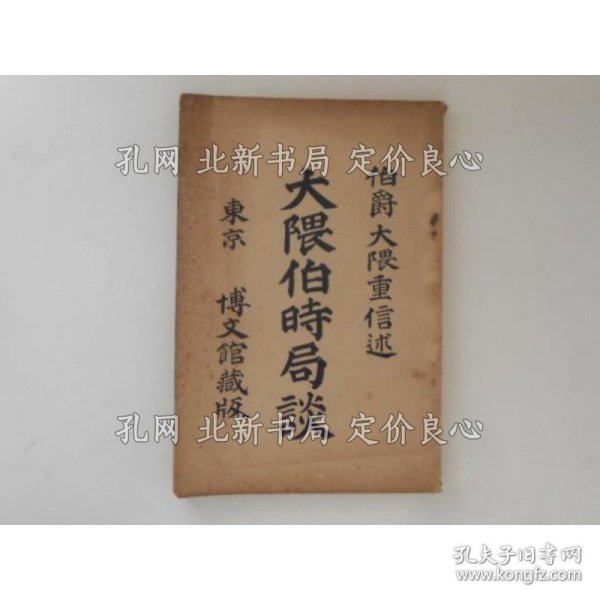 伯爵大隈重信述
大隈伯時局談
東京 博文館藏版
孔网 北新书局 定价良心
孔网 北新书局 定价良心
孔夫子旧书网
www.kongfz.com